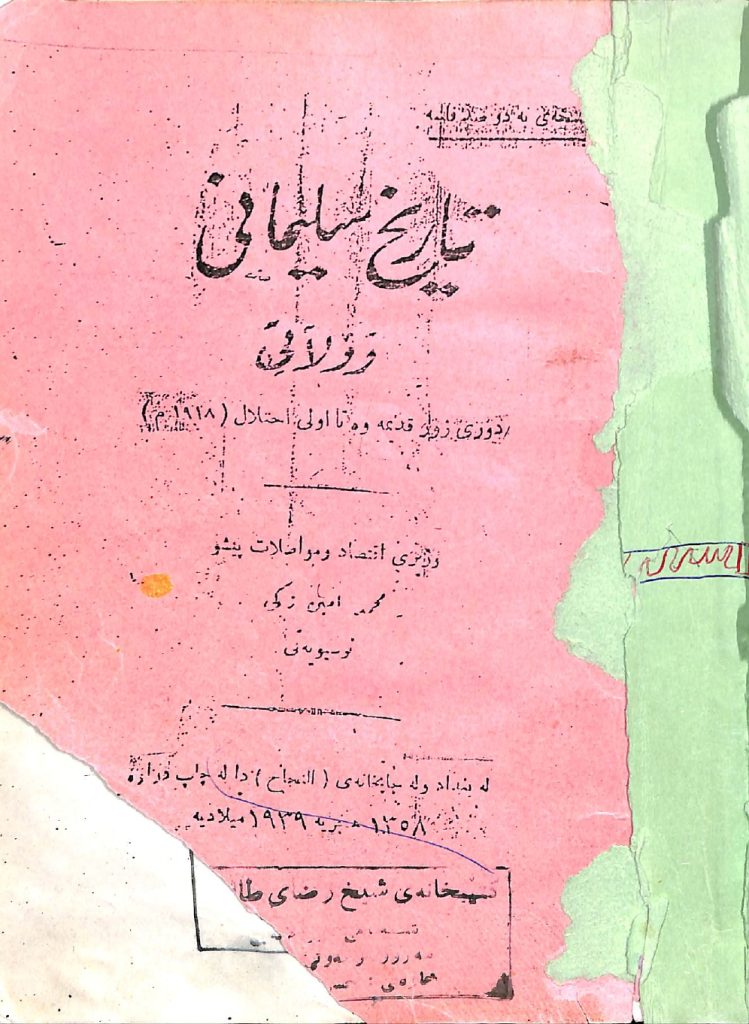 نسخه‌ی به دو صد فلسه
تاریخ سلیمانی
و وولاتی
له دوری زور قدیمه وه تا اولی احتلال (١٩١٨ م)
وزیری اقتصاد ومواصلات پیشو
محمد امین زکی
نوسیویه‌تی
له بغداد وله چاپخانه‌ی (النجاح) دا له چاپ دراوه
١٣٥٨ هجریه ١٩٣٩ میلادیه
کتبخانه‌ی شیخ رضای